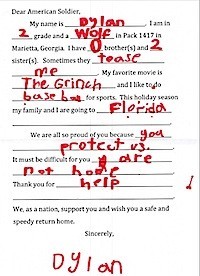 Dear American Soldier,
My name is Dylan. I am in
2 grade and a Wolf in Pack 1417 in
Marietta, Georgia. I have 0 brother(s) and 2
sister(s). Sometimes they tease
me. My favorite movie is
The Grinch and I like to do
base ball for sports. This holiday season
my family and I are going to Florida
We are all so proud of you because you
protect us.
It must be difficult for you are
not home
Thank you for help
We, as a nation, support you and wish you a safe and
speedy return home.
Sincerely,
Dylan